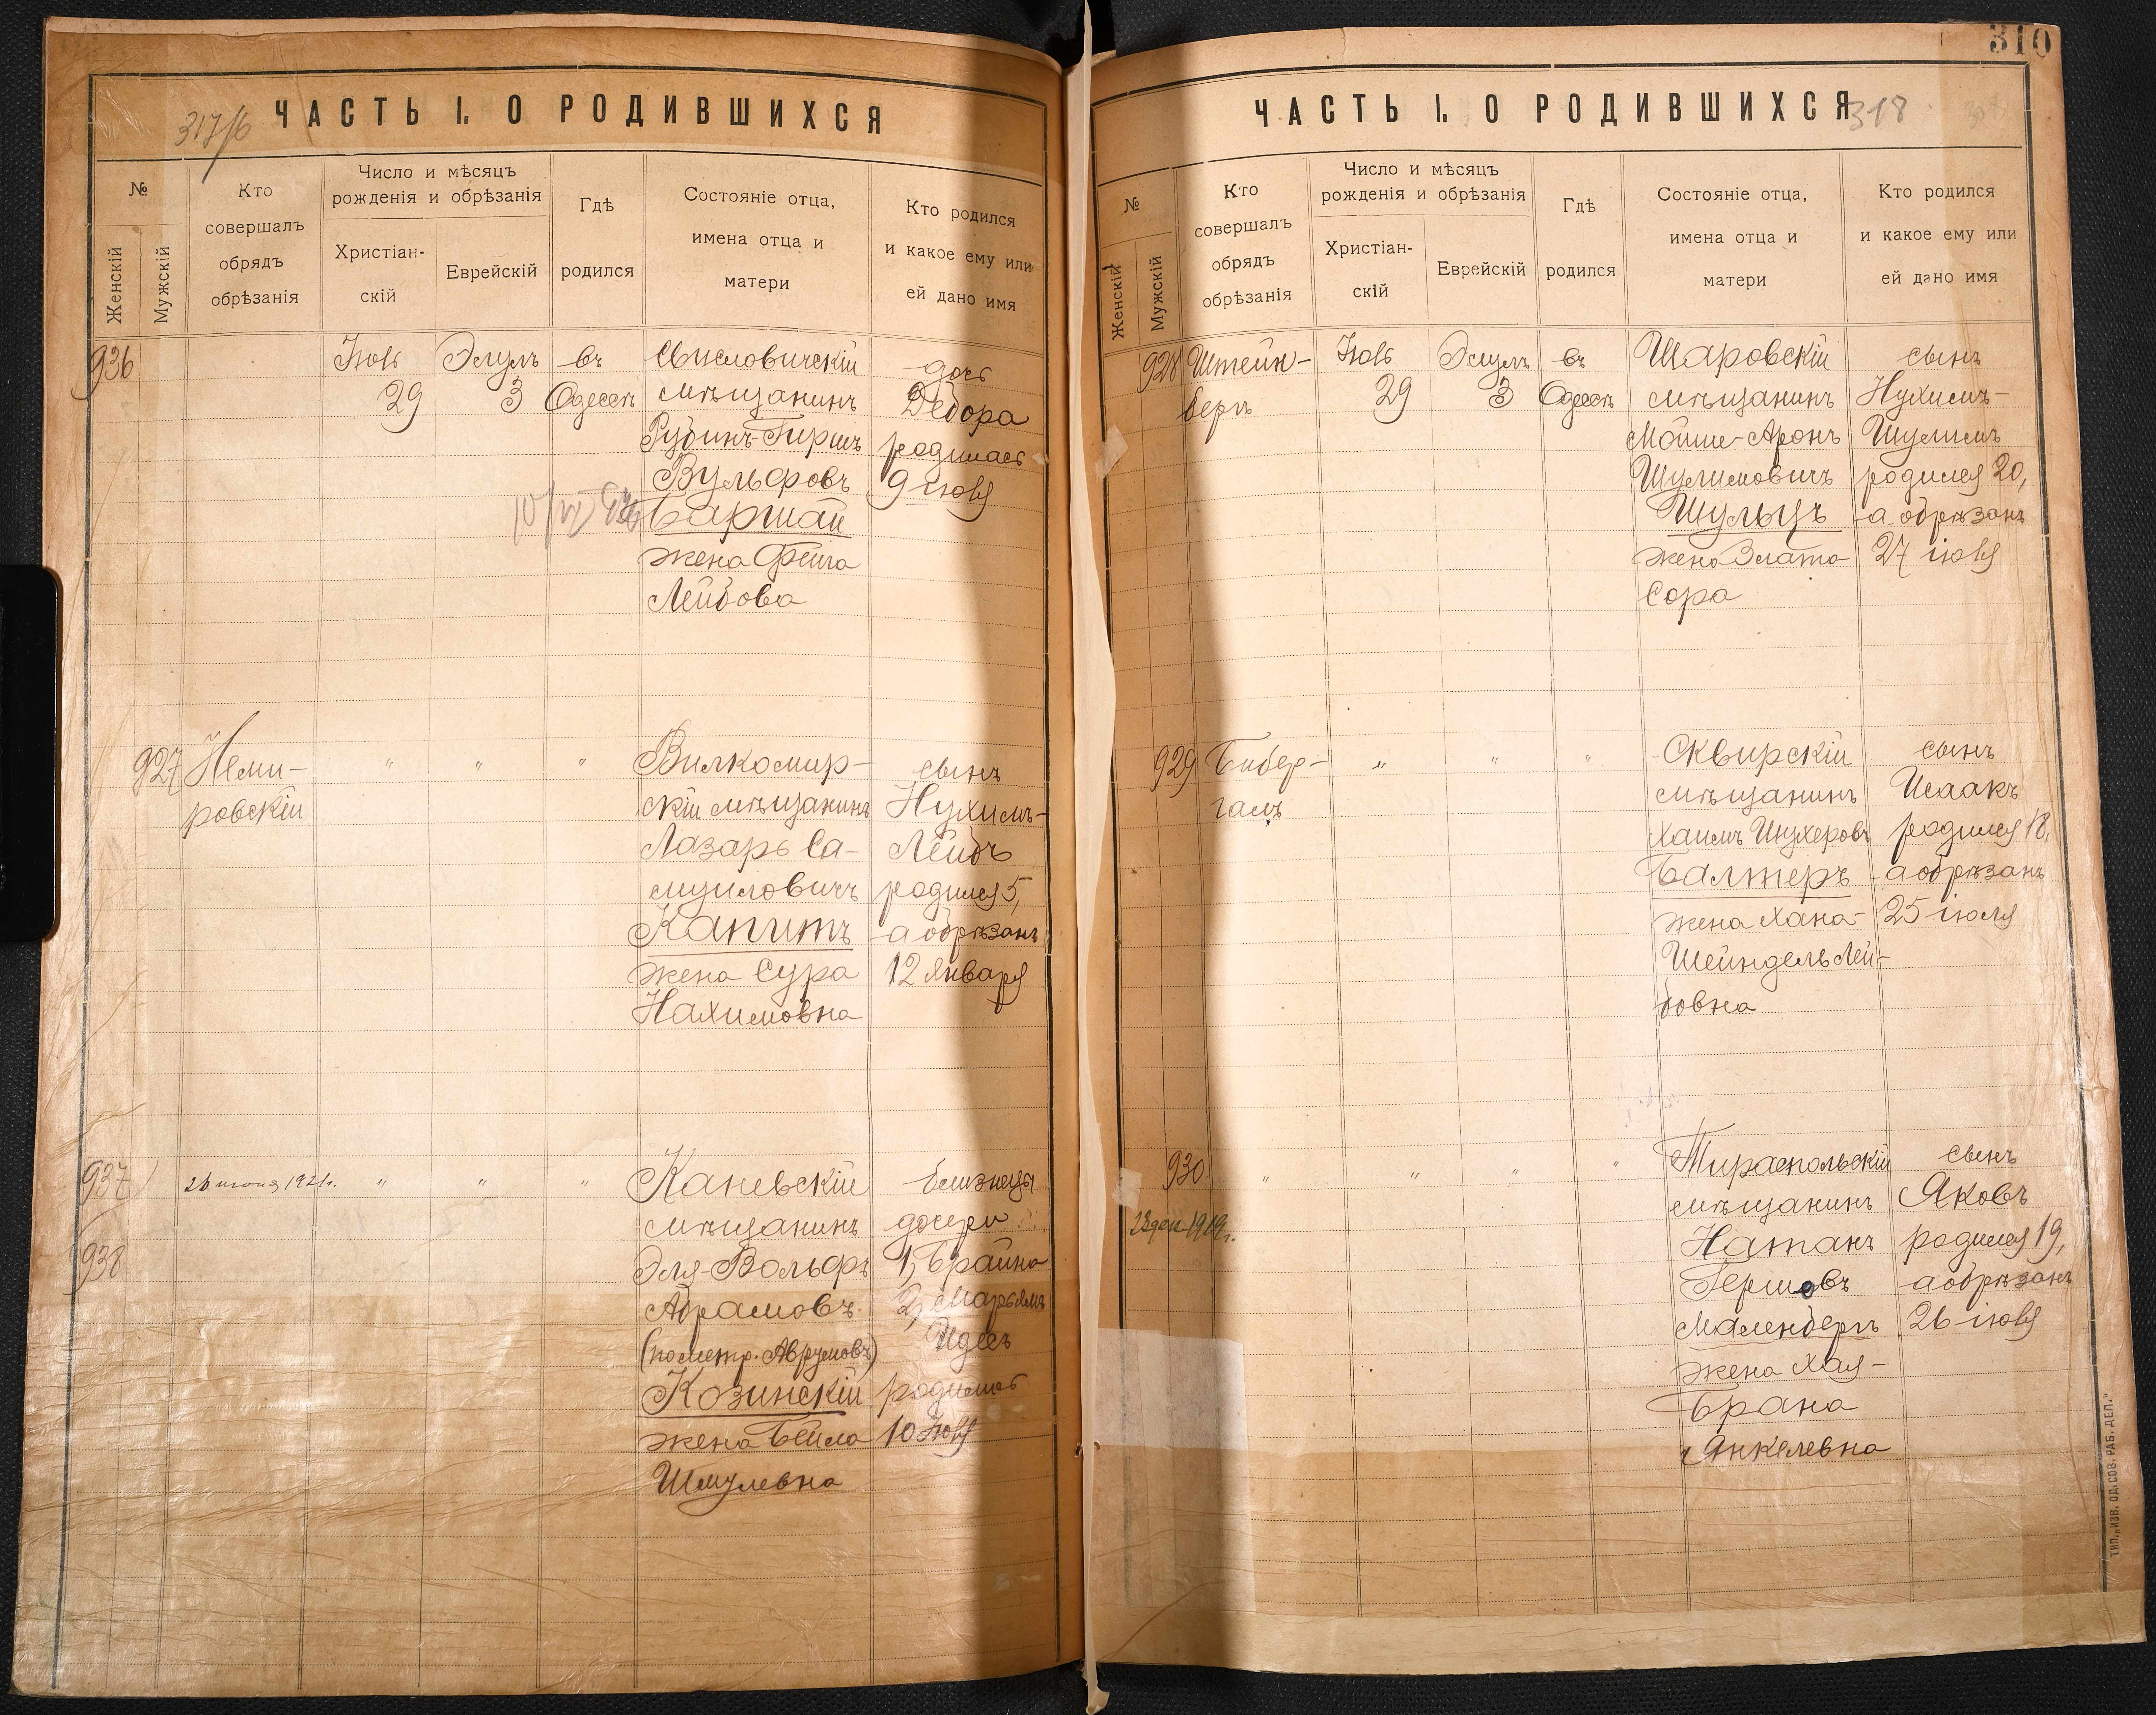 317/б
ЧАСТЬ I. О РОДИВШИХСЯ
№
Женскій
Мужскій
Кто
совершалъ
обрядъ
обрѣзанія
Число и мѣсяцъ
рожденія и обрѣзанія
Христіан-
скій
Еврейскій
Гдѣ
родился
Состояніе отца,
имена отца и
матери
Кто родился
и какое ему или
ей дано имя
936
Іюль
29
Элулъ
3
въ
Одессѣ
мѣщанинъ
Рубинъ-Гиршъ
Вульфовъ
жена Фейга
Лейбова
дочь
Дебора
родилась
9 іюля
927
Неми-
ровскій
"
"
"
Вилкомир-
скій мѣщанинъ
Лазарь Са-
муиловичъ
Капитъ
жена Сура
Нахимовна
сынъ
Нухимъ-
Лейбъ
родился 5,
а обрѣзанъ
12 января
937
938
26 июня 1921г.
"
"
"
Каневскій
мѣщанинъ
Эля-Вольфъ
Абрамовъ
(по метр. Аврумовъ)
Козинскій
жена Бейла
Шмулевна
близнецы
дочери
1, Брайна
2, Марьямъ
Идесъ
родились
10 Іюля
310
ЧАСТЬ I. О РОДИВШИХСЯ
318
№
Женскій
Мужскій
Кто
совершалъ
обрядъ
обрѣзанія
Число и мѣсяцъ
рожденія и обрѣзанія
Христіан-
скій
Еврейскій
Гдѣ
родился
Состояніе отца,
имена отца и
матери
Кто родился
и какое ему или
ей дано имя
928
Штейн-
бергъ
Іюль
29
Элулъ
3
въ
Одессѣ
Шаровскій
мѣщанинъ
Мойше-Аронъ
Шулимовичъ
Шульцъ
жена Злата
Сора
сынъ
Нухимъ-
Шулимъ
родился 20,
а обрѣзанъ
27 іюля
929
Бибер-
галъ
"
"
"
Сквирскій
мѣщанинъ
Хаимъ Шухеровъ
Балтеръ
жена Хана-
Шейндель Лей-
бовна
сынъ
Исаакъ
родился 18,
а обрѣзанъ
25 іюля
930
23 дек 1919г.
"
"
"
"
Тираспольскій
мѣщанинъ
Натанъ
Гершовъ
Маленбергъ
жена Хая-
Брана
Янкелевна
сынъ
Яковъ
родился 19,
а обрѣзанъ
26 іюля
ТИП. „ИЗВ. ОД. СОВ. РАБ. ДЕП."